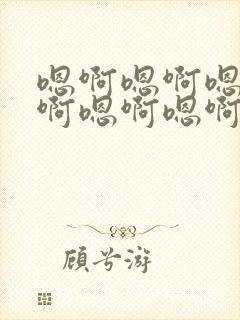 嗯啊嗯啊嗯
啊嗯啊嗯啊
顾兮游